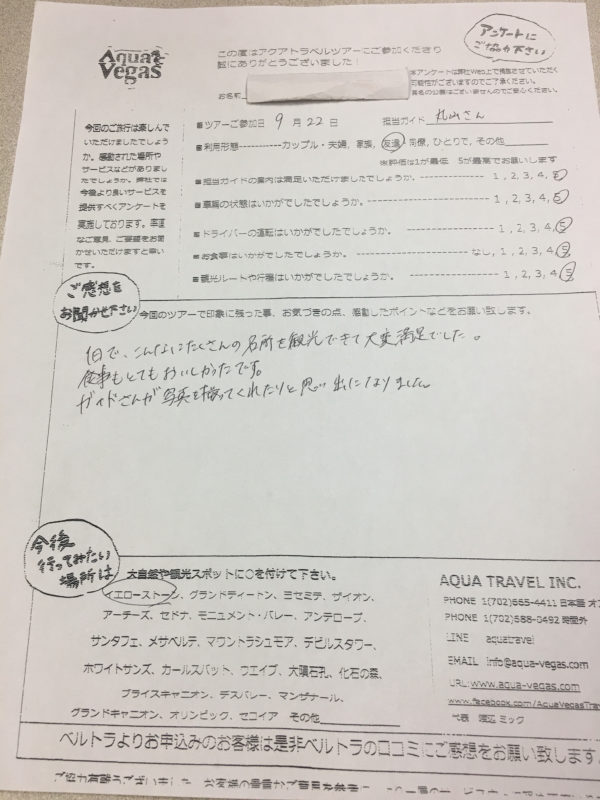 Aqua Vegas
この度はアクアトラベルツアーにご参加くださり
誠にありがとうございました！
アンケートに
ご協力下さい
本アンケートは弊社Web上で掲載させていただく
可能性がございますのでご了承ください。
お名前
今回のご旅行は楽しんで
いただけましたでしょう
か。感動された場所や
サービスなどがありまし
たでしょうか。弊社では
今後より良いサービスを
提供すべくアンケートを
実施しております。率直
なご意見、ご要望をお聞
かせいただけますと幸い
です。
■ツアーご参加日 9月22日 担当ガイド 丸山さん
■利用形態------------カップル・夫婦, 家族, 友達, 同僚, ひとりで, その他
※評価は1が最低 5が最高でお願いします
■担当ガイドの案内は満足いただけましたでしょうか。 1, 2, 3, 4, 5
■車輌の状態はいかがでしたでしょうか。 1, 2, 3, 4, 5
■ドライバーの運転はいかがでしたでしょうか。 1, 2, 3, 4, 5
■お食事はいかがでしたでしょうか。 なし, 1, 2, 3, 4, 5
■観光ルートや行程はいかがでしたでしょうか。 1, 2, 3, 4, 5
ご感想を
お聞かせ下さい
今回のツアーで印象に残った事、お気づきの点、感動したポイントなどをお願い致します。
1日で、こんなにたくさんの名所を観光できて大変満足でした。
食事もとてもおいしかったです。
ガイドさんが写真を撮ってくれたりと思い出になりました。
今後
行ってみたい
場所は
大自然や観光スポットに○を付けて下さい。
イエローストーン, グランドティートン, ヨセミテ, ザイオン,
アーチーズ, セドナ, モニュメント・バレー, アンテロープ,
サンタフェ, メサベルテ, マウントラシュモア, デビルスタワー,
ホワイトサンズ, カールスバット, ウエイブ, 大隕石孔, 化石の森,
ブライスキャニオン, デスバレー, マンザナール,
グランドキャニオン, オリンピック, セコイア その他
AQUA TRAVEL INC.
PHONE 1(702)665-4411 日本語
PHONE 1(702)588-0492 時間外
LINE aquatravel
EMAIL info@aqua-vegas.com
URL: www.aqua-vegas.com
www.facebook.com/AquaVegasTra
代表 渡辺 ミック
ベルトラよりお申込みのお客様は是非ベルトラの口コミにご感想をお願い致します。